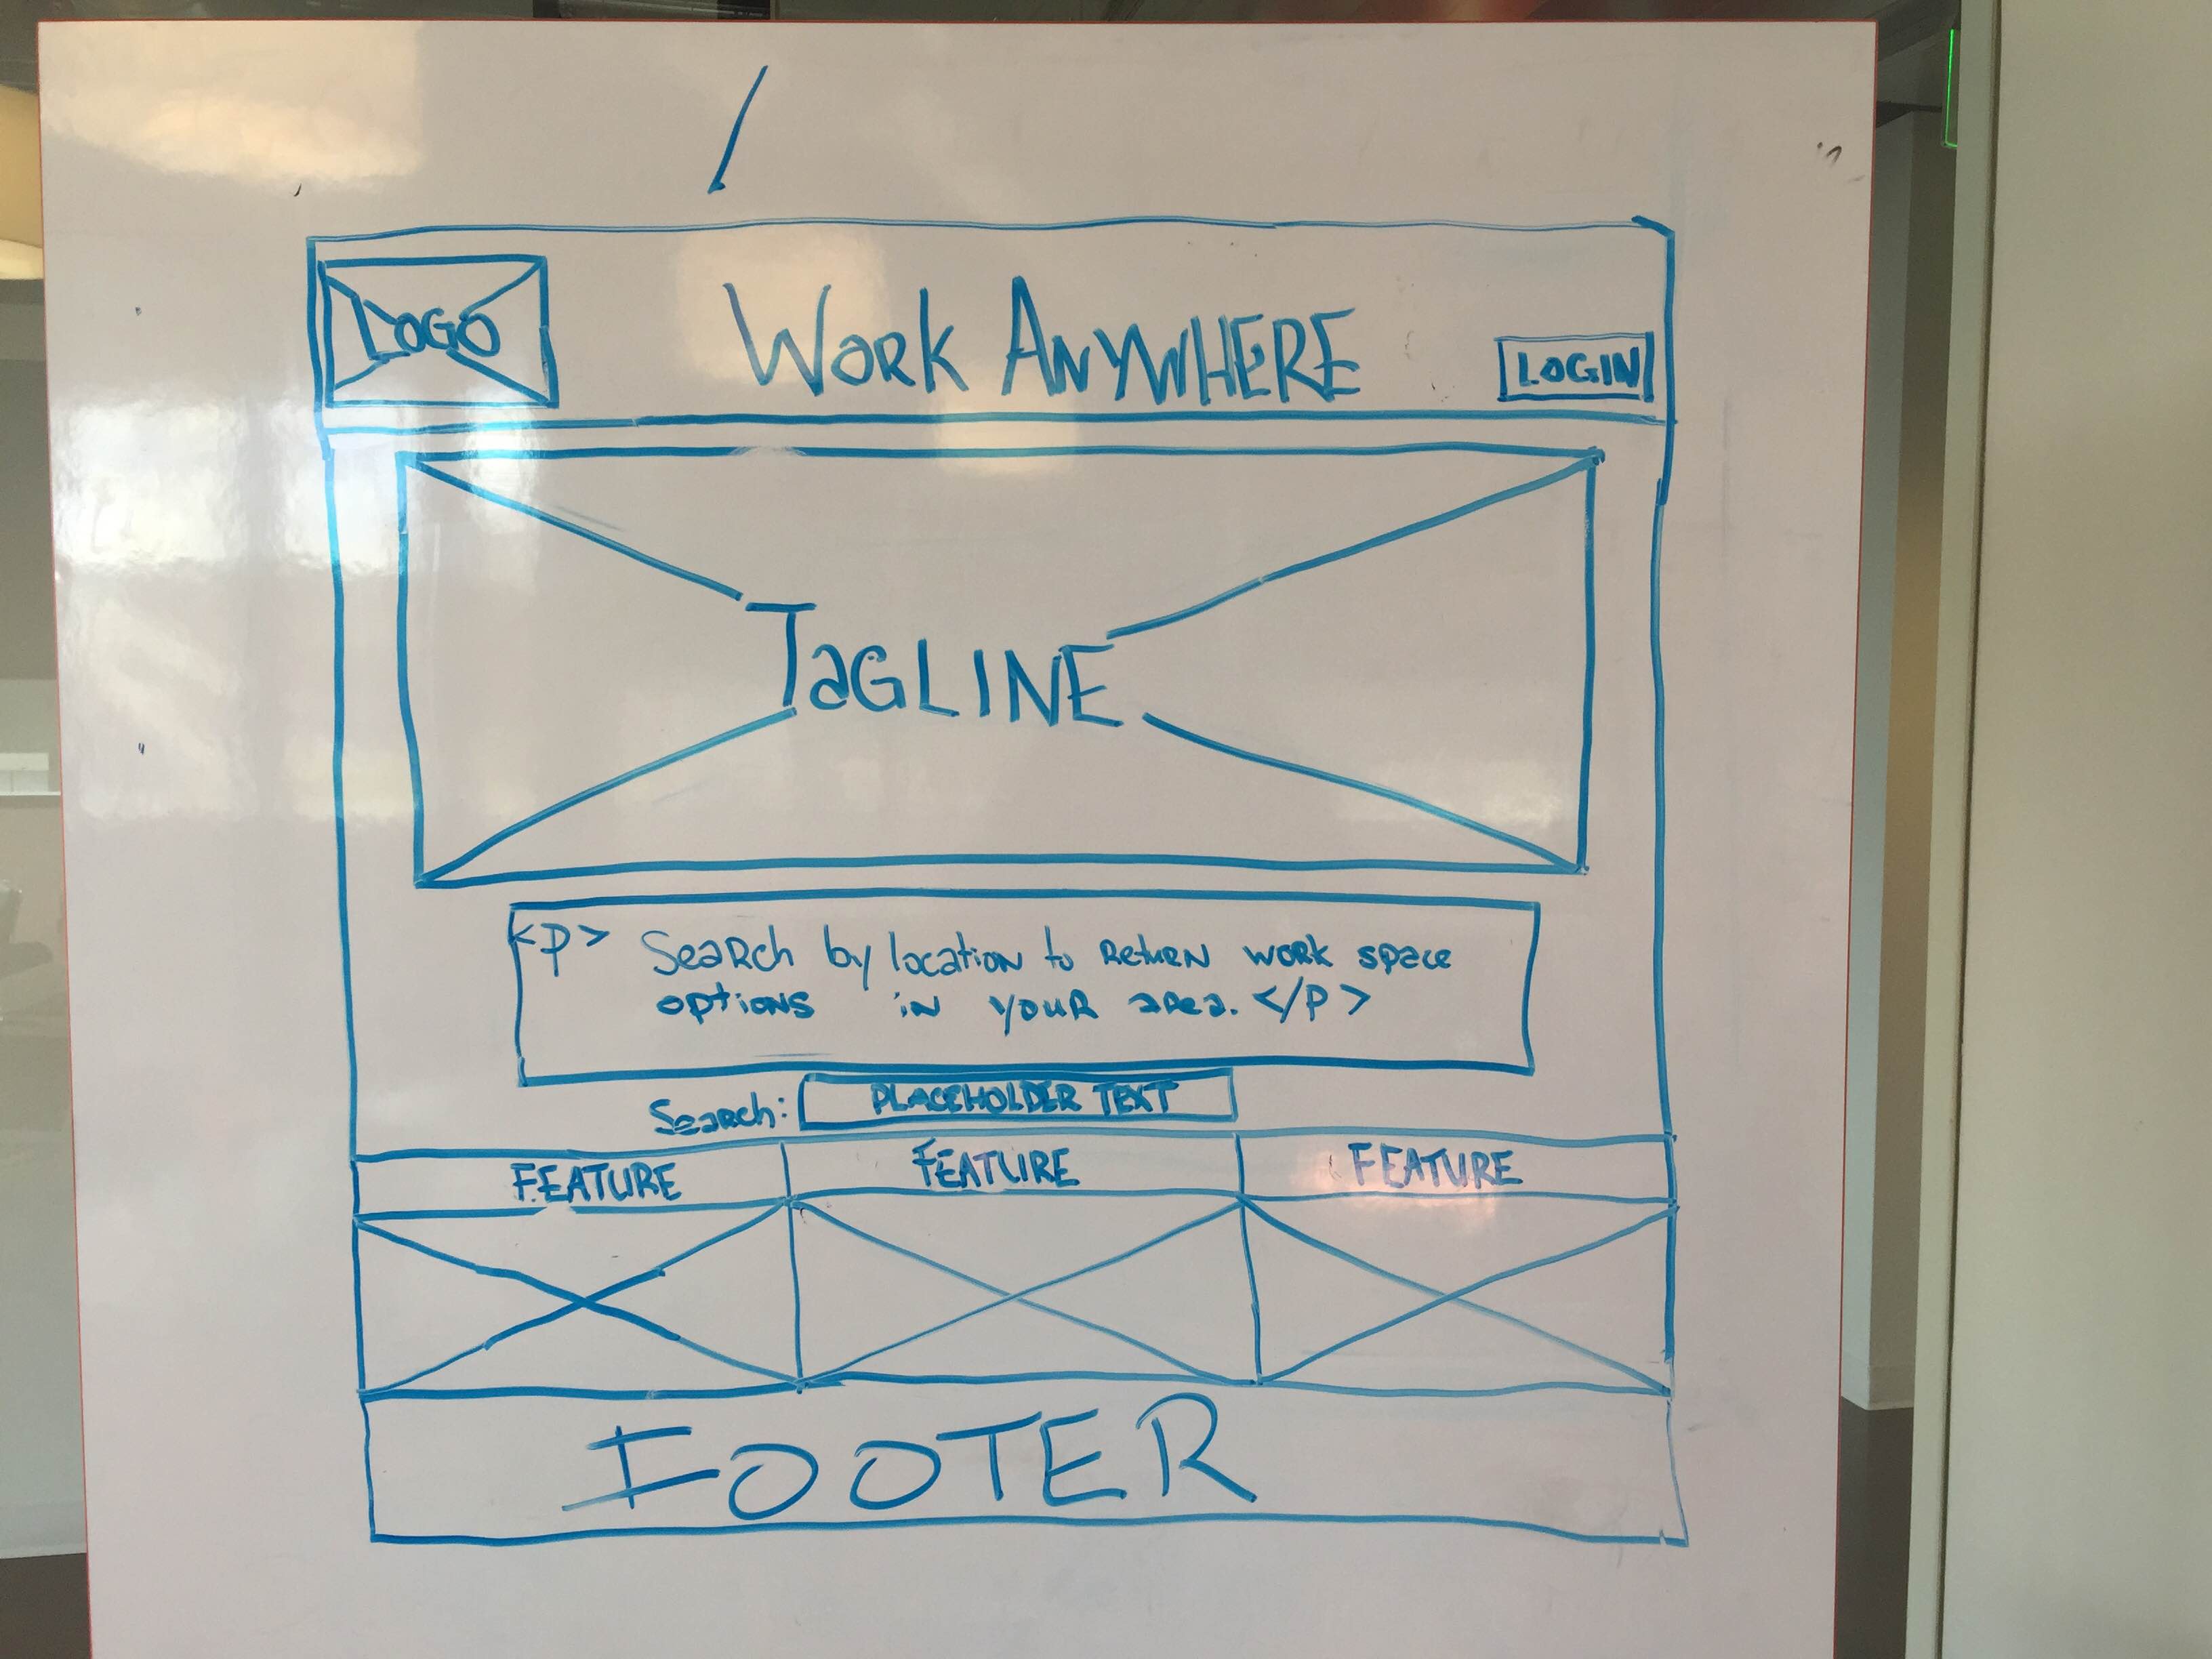 /
LOGO
WORK ANYWHERE
LOGIN
TaGLINE
<P> SeaRch by location to RetuRN WORK space
optioNs iN youR aRea. </P>
SeaRch: PLACEHOLDER TEXT
FEATURE FEATURE FEATURE
FOOTER